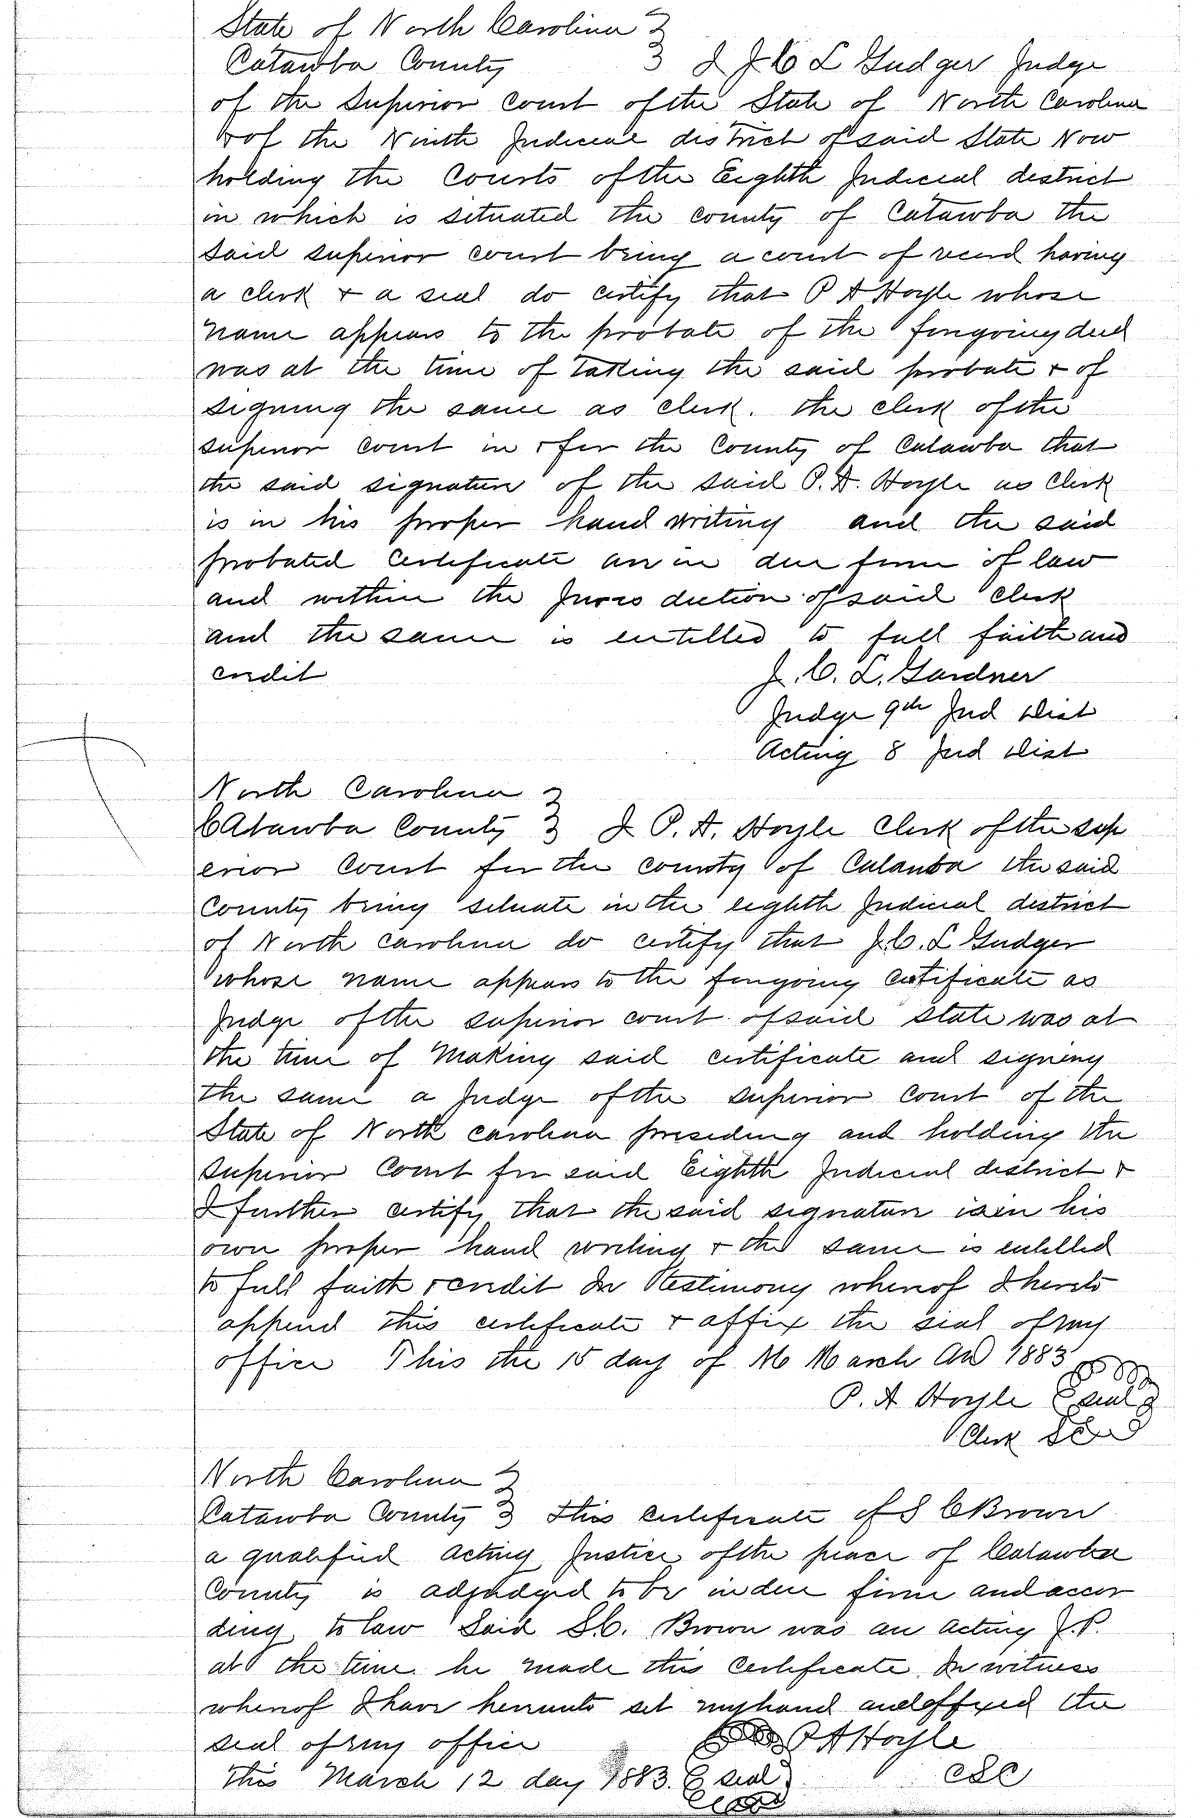 State of North Carolina
Catawba County I J C L Gudger Judge
of the Superior Court of the State of North Carolina
+ of the Ninth Judicial district of said State Now
holding the Courts of the Eighth Judicial district
in which is situated the county of Catawba the
said superior court being a court of record having
a clerk + a seal do certify that P A Hoyle whose
name appears to the probate of the foregoing deed
was at the time of taking the said probate + of
signing the same as clerk. the clerk of the
superior court in + for the County of Catawba that
the said signature of the said P. A. Hoyle as Clerk
is in his proper hand writing and the said
probated certificate are in due form of law
and within the Jurisdiction of said clerk
and the same is entitled to full faith and
credit J. C. L. Gardner
Judge 9th Jud Dist
Acting 8 Jud Dist
North Carolina
Catawba County I P. A. Hoyle Clerk of the sup
erior Court for the county of Catawba the said
County being situate in the eighth Judicial district
of North Carolina do certify that J. C. L Gudger
whose name appears to the foregoing certificate as
Judge of the superior court of said state was at
the time of making said certificate and signing
the same a Judge of the Superior Court of the
State of North Carolina presiding and holding the
Superior Court for said Eighth Judicial district +
I further certify that the said signature is in his
own proper hand writing + the same is entitled
to full faith + credit In Testimony whereof I hereto
append this certificate + affix the seal of my
office This the 15 day of M March AD 1883
P. A Hoyle seal
Clerk
North Carolina
Catawba County This certificate of S C Brown
a qualified acting Justice of the peace of Catawba
County is adjudged to be in due form and accor
ding to law Said S C. Brown was an acting J. P.
at the time he made this certificate In witness
whereof I have hereunto set my hand and affixed the
seal of my office P A Hoyle
This March 12 day 1883. seal CSC